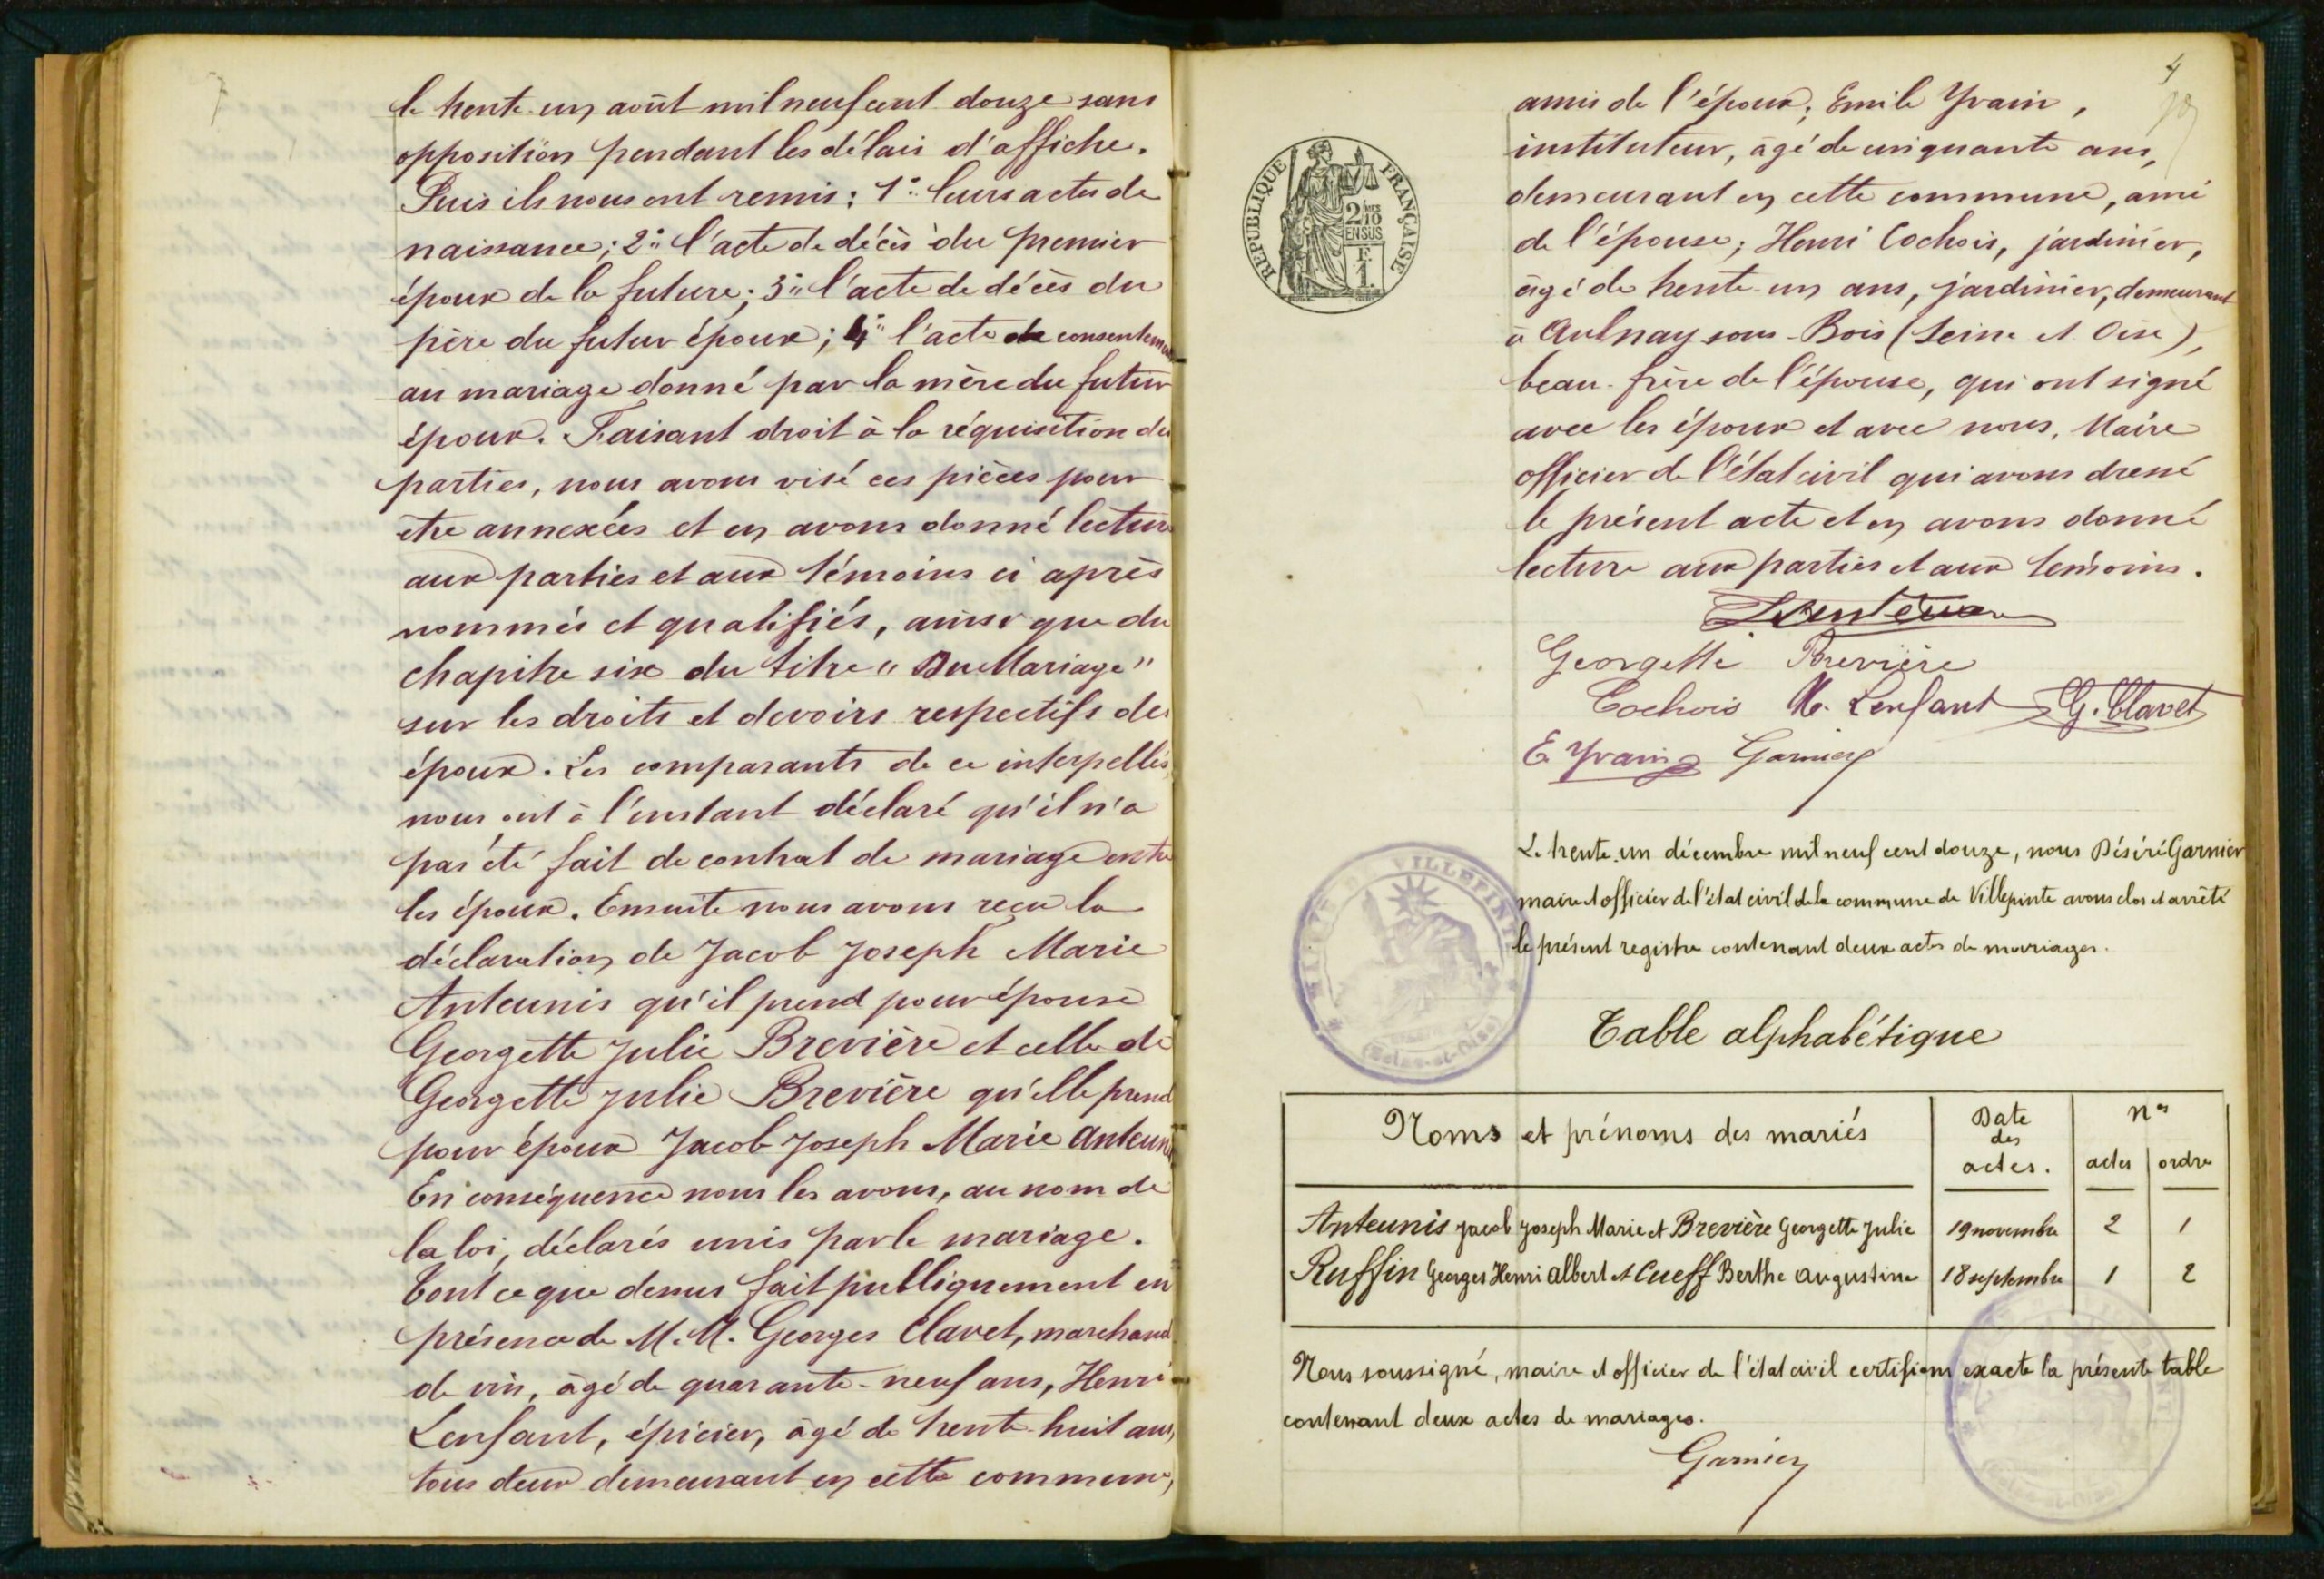 le trente-un août mil neuf cent douze sans
opposition pendant les délais d'affiche.
Puis ils nous ont remis : 1° leurs actes de
naissance ; 2° l'acte de décès du premier
époux de la future ; 3° l'acte de décès du
père du futur époux ; 4° l'acte de consentement
au mariage donné par la mère du futur
époux. Faisant droit à la réquisition des
parties, nous avons visé ces pièces pour
être annexées et en avons donné lecture
aux parties et aux témoins ci après
nommés et qualifiés, ainsi que du
chapitre six du titre "Du Mariage"
sur les droits et devoirs respectifs des
époux. Les comparants de ce interpellés
nous ont à l'instant déclaré qu'il n'a
pas été fait de contrat de mariage entre
les époux. Ensuite nous avons reçu la
déclaration de Jacob Joseph Marie
Anteunis qu'il prend pour épouse
Georgette Julie Brevière et celle de
Georgette Julie Brevière qu'elle prend
pour époux Jacob Joseph Marie Anteunis
En conséquence nous les avons, au nom de
la loi, déclarés unis par le mariage.
Tout ce que dessus fait publiquement en
présence de M.M. Georges Clavet, marchand
de vin, âgé de quarante-neuf ans, Henri
Lenfant, épicier, âgé de trente-huit ans,
tous deux demeurant en cette commune,
4
amis de l'époux ; Emile Yvain,
instituteur, âgé de cinquante ans,
demeurant en cette commune, ami
de l'épouse ; Henri Cochois, jardinier,
âgé de trente-un ans, jardinier, demeurant
à Aulnay sous-Bois (Seine et Oise),
beau-frère de l'épouse, qui ont signé
avec les époux et avec nous, Maire
officier de l'état civil qui avons dressé
le présent acte et en avons donné
lecture aux parties et aux témoins.
RÉPUBLIQUE FRANÇAISE
2/10 EN SUS
F. 1
Georgette Brevière
Cochois H. Lenfant G. Clavet
E Yvain Garnier
Le trente-un décembre mil neuf cent douze, nous Désiré Garnier
maire et officier de l'état civil de la commune de Villepinte avons clos et arrêté
le présent registre contenant deux actes de mariages.
MAIRIE DE VILLEPINTE
(Seine-et-Oise)
Table alphabétique
Noms et prénoms des mariés | Date des actes. | nos actes | ordre
Anteunis Jacob Joseph Marie et Brevière Georgette Julie 19 novembre 2 1
Ruffin Georges Henri Albert et Cueff Berthe Augustine 18 septembre 1 2
Nous soussigné, maire et officier de l'état civil certifions exacte la présente table
contenant deux actes de mariages.
Garnier